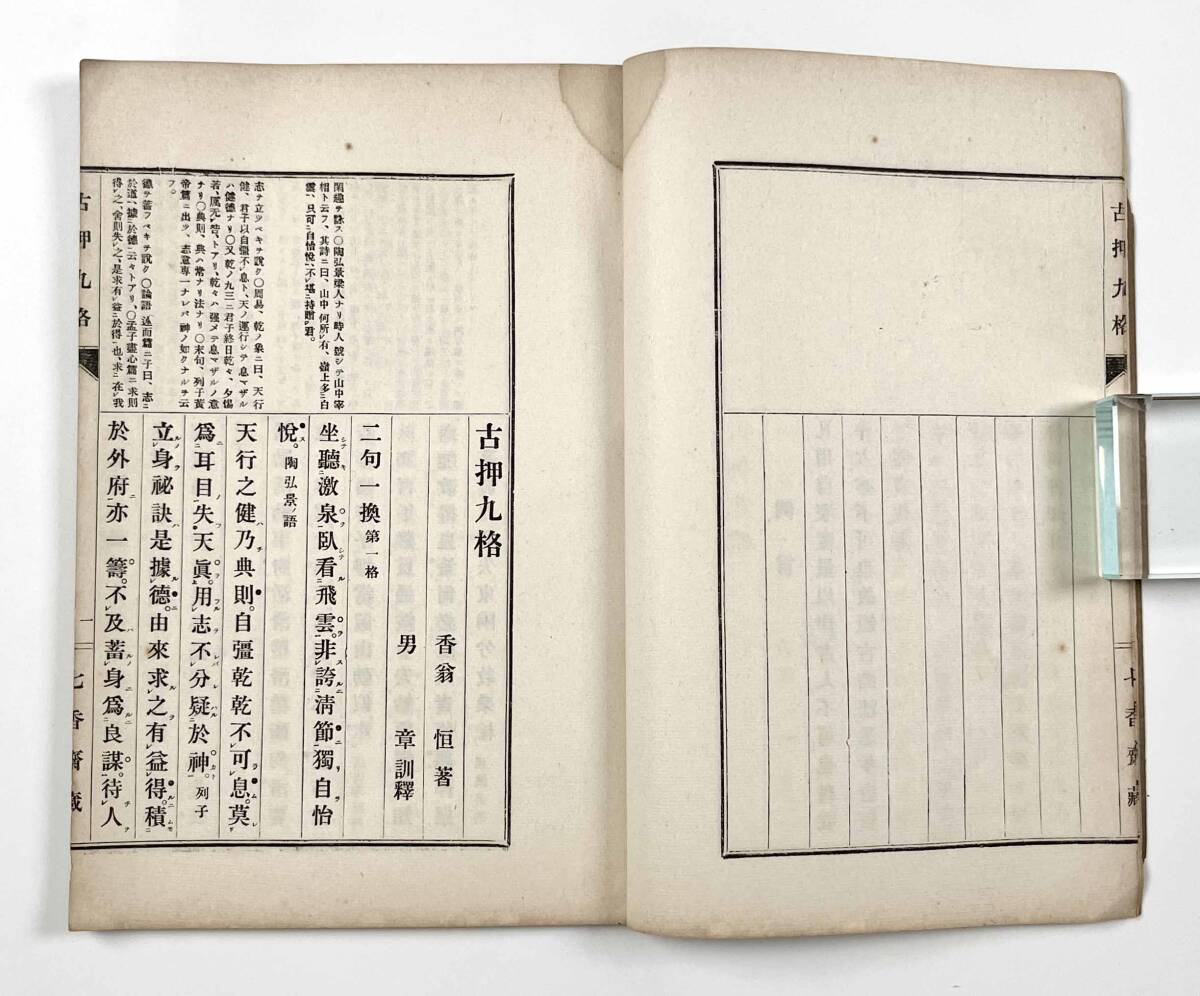 古押九格
七香齋藏
古押九格
香翁 恒著
男 章訓釋
二句一換 第一格
坐聽激泉臥看飛雲。非誇淸節獨自怡
悅。陶弘景ノ語
天行之健乃典則。自彊乾乾不可息。莫
爲耳目失天眞。用志不分疑於神。列子
立身祕訣是據德。由來求之有益得。積
於外府亦一籌。不及蓄身爲良謀。待人
閑適ヲ詠ス〇陶弘景梁人ナリ時人號シテ山中宰
相ト云フ、其詩ニ曰、山中何所有、嶺上多白
雲、只可自怡悅、不堪持贈君。
志ヲ立ツベキヲ說ク〇周易、乾ノ象ニ曰、天行
健、君子以自彊不息ト、天ノ運行シテ息マザル
ハ健德ナリ〇又乾ノ九三ニ君子終日乾々、夕惕
若、厲无咎、トアリ、乾々ハ强メテ息マザルノ意
ナリ〇典則、典ハ常ナリ法ナリ〇末句、列子黃
帝篇ニ出ヅ、志意專一ナレバ神ノ如クナルヲ云
フ。
德ヲ蓄フベキヲ說ク〇論語述而篇ニ子曰、志
於道、據於德云々トアリ、〇孟子盡心篇ニ求則
得之、舍則失之、是求有益於得也、求在我
古押九格
一
七香齋藏